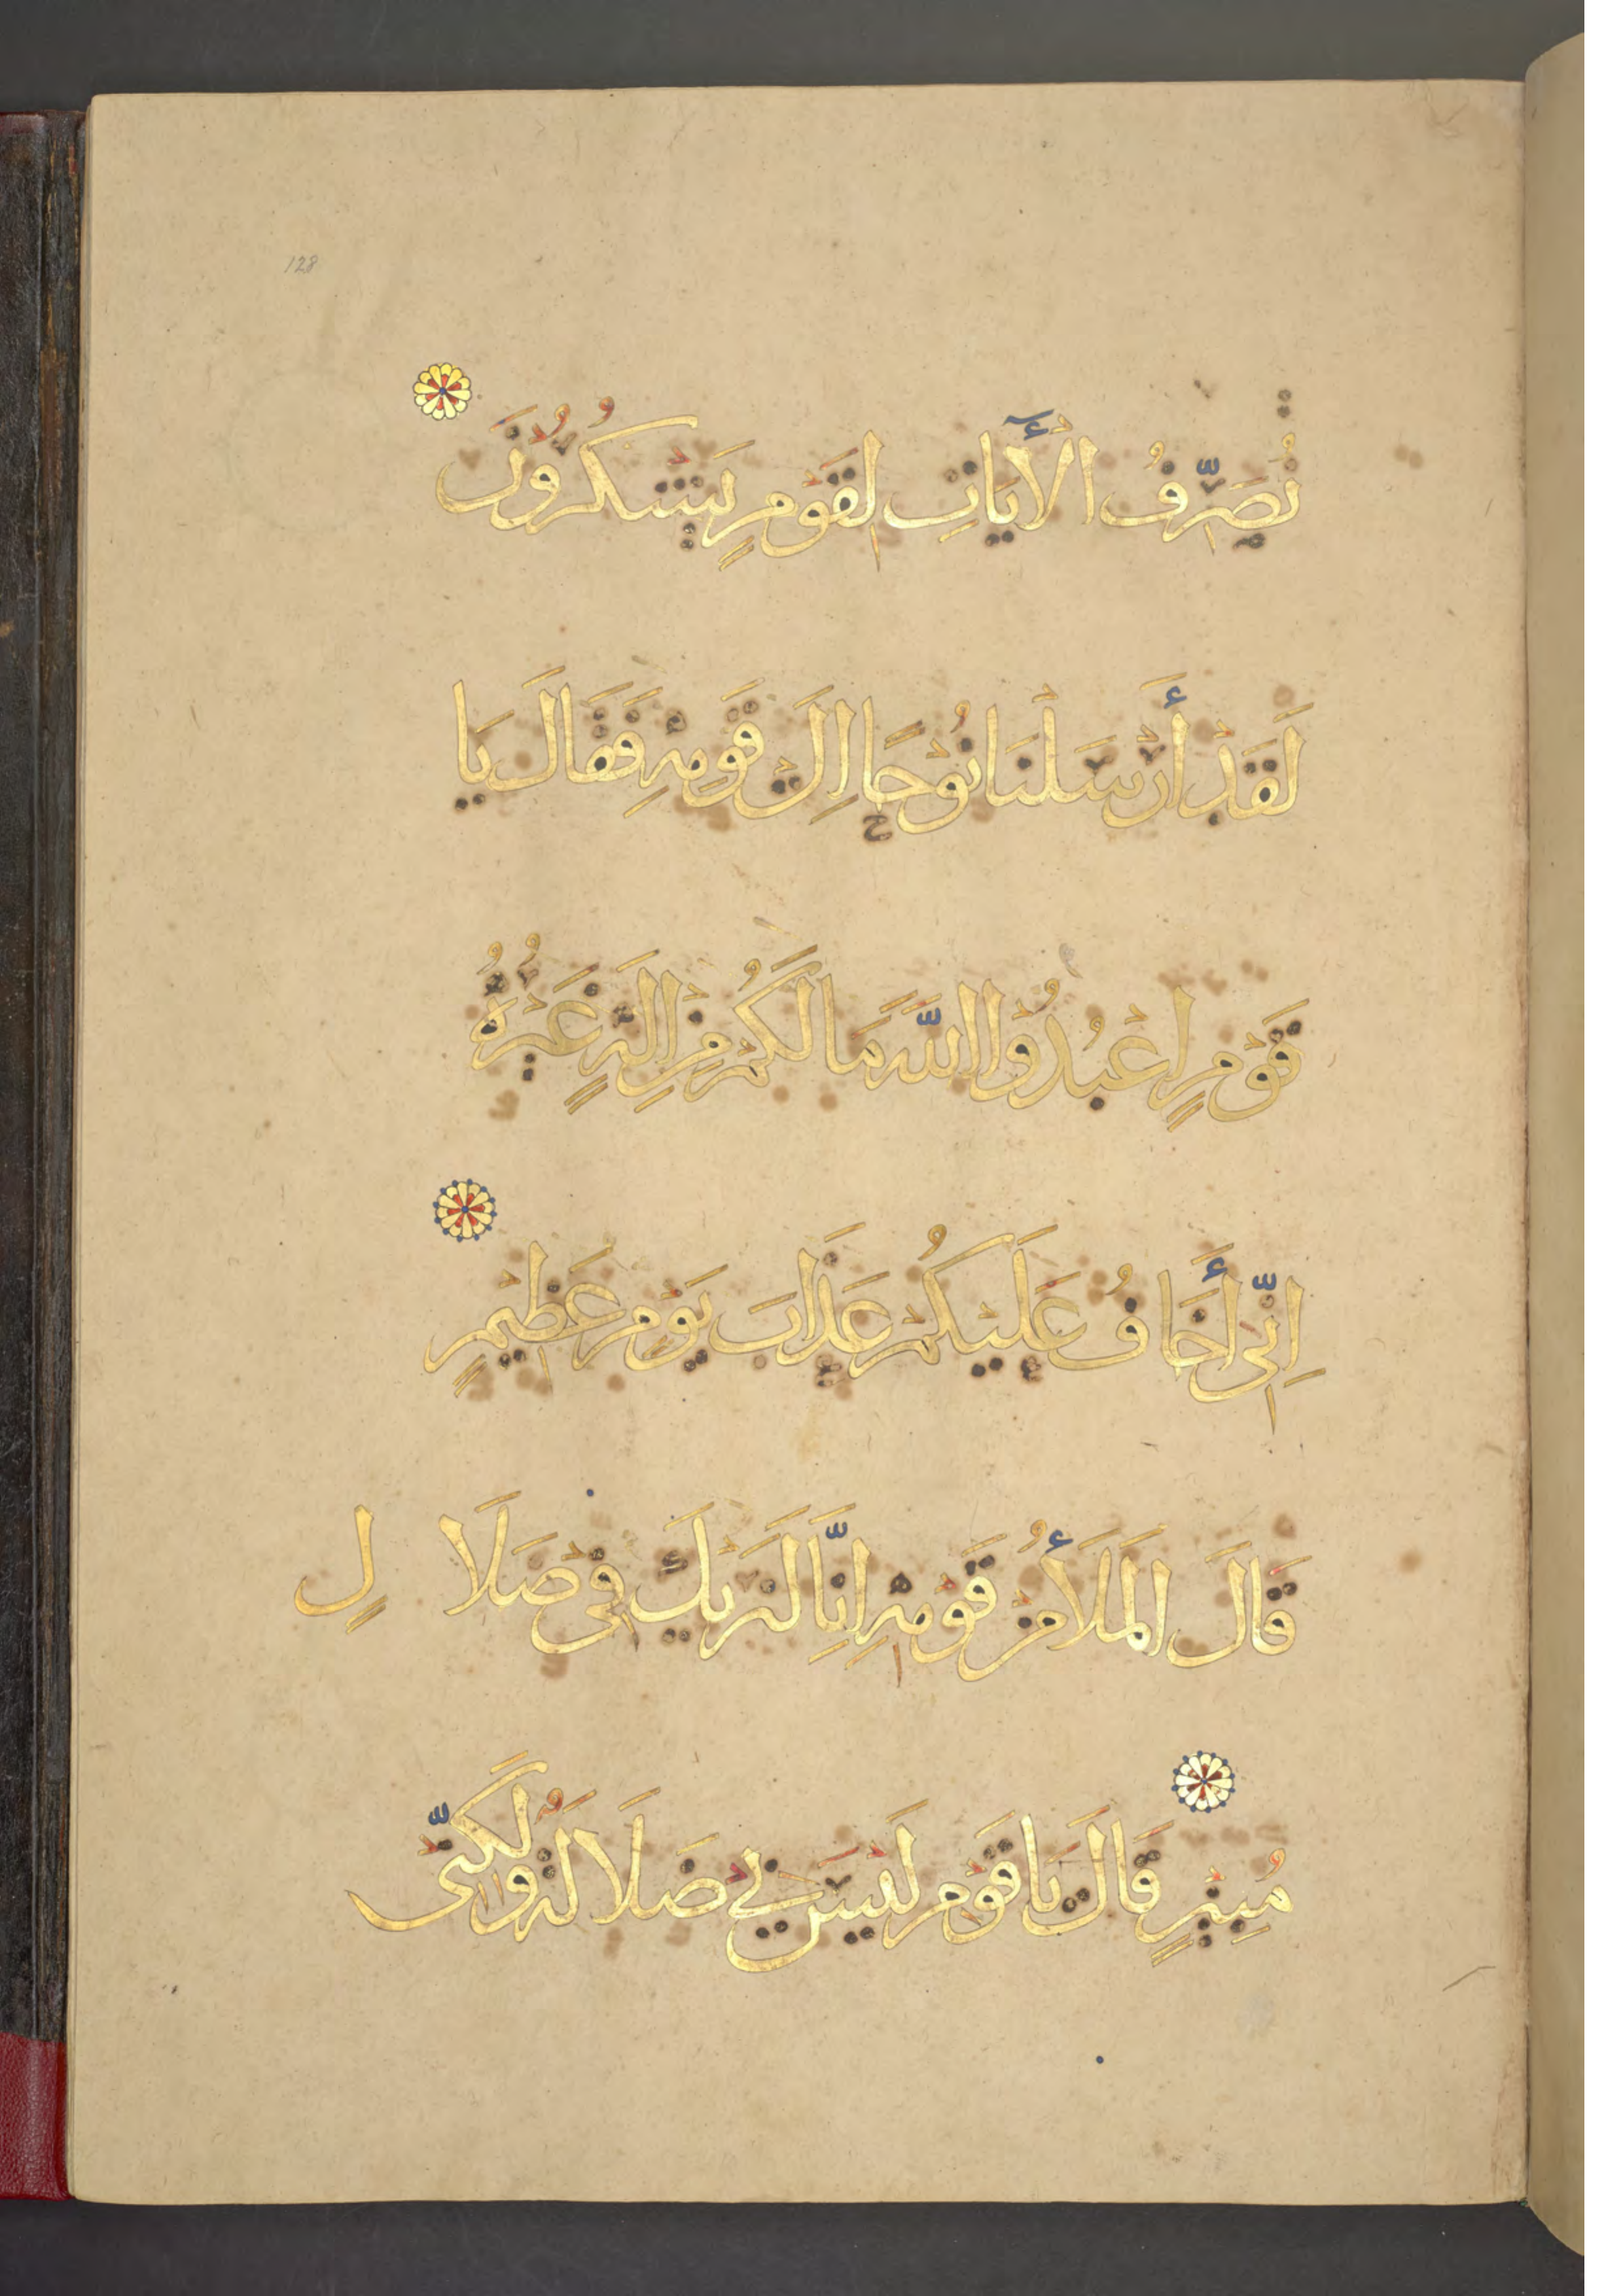 128
نُصَرِّفُ الْأَيَاتِ لِقَوْمٍ يَشْكُرُونَ
لَقَدْ أَرْسَلْنَا نُوْحًا اِلَىْ قَوْمِهِ فَقَالَ يَا
قَوْمِ اعْبُدُوْا اللَّهَ مَا لَكُمْ مِنْ اِلَهٍ غَيْرُهُ
اِنِّى أَخَافُ عَلَيْكُمْ عَذَابَ يَوْمٍ عَظِيْمٍ
قَالَ الْمَلَأُ مِنْ قَوْمِهِ اِنَّا لَنَرَيكَ فِىْ ضَلَا لٍ
مُبِيْنٍ قَالَ يَا قَوْمِ لَيْسَ بِيْ ضَلَالَةٌ وَلَكِنِّى